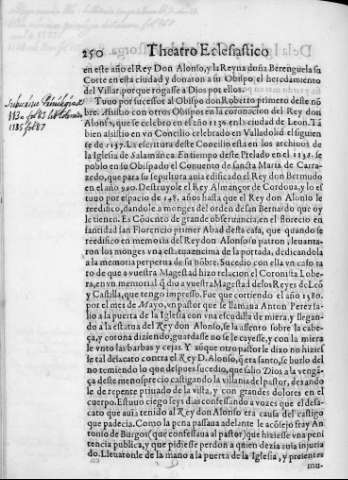 250 Theatro Eclesiastico
en este año el Rey Don Alonso, y la Reyna doña Berenguela su
Corte en esta ciudad y donaron a su Obispo, el heredamiento
del Villar, porque rogasse a Dios por ellos.
Tuuo por sucessor al Obispo don Roberto primero deste nõ
bre. Assistio con otros Obispos en la coronacion del Rey don
Alonso, que se celebro en este año 1135 en la ciudad de Leon. Tã
bien assistio en vn Concilio celebrado en Valladolid el siguien
te de 1137. La escritura deste Concilio esta en los archiuos de
la Iglesia de Salamãnca. En tiempo deste Prelado en el 1138. se
poblo en su Obispado el Conuento de sancta Maria de Carra-
zedo, que para su sepultura auia edificado el Rey don Bermudo
en el año 990. Destruyole el Rey Almançor de Cordoua, y lo es
tuuo por espacio de 148. años hasta que el Rey don Alonso le
reedifico, dandole a monges del orden de san Bernardo que oy
le tienen. Es Cõuento de grande obseruancia, en el florecio en
santidad san Florencio primer Abad desta casa, que quando se
reedifico en memoria del Rey don Alonso su patron, leuanta-
ron los monges vna estatua encima de la portada, dedicandola
a la memoria perpetua de su nõbre. Sucedio con ella vn caso ra
ro de que a vuestra Magestad hizo relacion el Coronista Lobe-
ra, en vn memorial q̃ dio a vuestra Magestad de los Reyes de Leõ
y Castilla, que tengo impresso. Fue que corriendo el año 1580.
por el mes de Mayo, vn pastor que se llamaua Anton Perez sa-
lio a la puerta de la Iglesia con vna escudilla de miera, y llegan-
do a la estatua del Rey don Alonso, se la assento sobre la cabe-
ça, y corona diziendo, guardasse no se le cayesse, y con la miera
le vnto las barbas y cejas. Y aũque otro pastor le dixo no hizies
se tal desacato contra el Rey D. Alonso, q̃ era santo, se burlo del
no temiendo lo que despues sucedio, que salio Dios a la vengã-
ça deste menosprecio castigando la villania del pastor, dexando
le de repente priuado de la vista, y con grandes dolores en el
cuerpo. Estuuo ciego seys dias confessando a vozes que el desa-
cato que auia tenido al Rey don Alonso era causa del castigo
que padecia. Como la pena passaua adelante le acõsejo fray An
tonio de Burgos (que confessaua al pastor) que hiziesse vna peni
tencia publica, y que pidiesse perdon a quien auia dezia injuria
do. Lleuaronle de la mano a la puerta de la Iglesia, y presentes
mu-